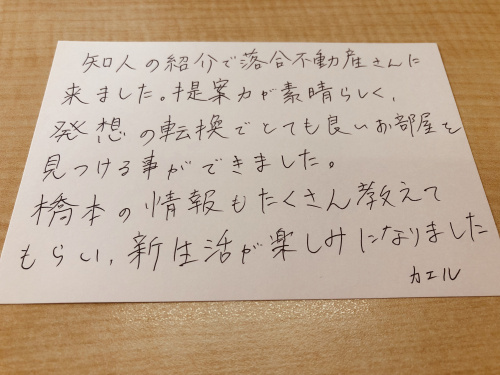 知人の紹介で落合不動産さんに
来ました。提案力が素晴らしく、
発想の転換でとても良いお部屋を
見つける事ができました。
橋本の情報もたくさん教えて
もらい、新生活が楽しみになりました
カエル